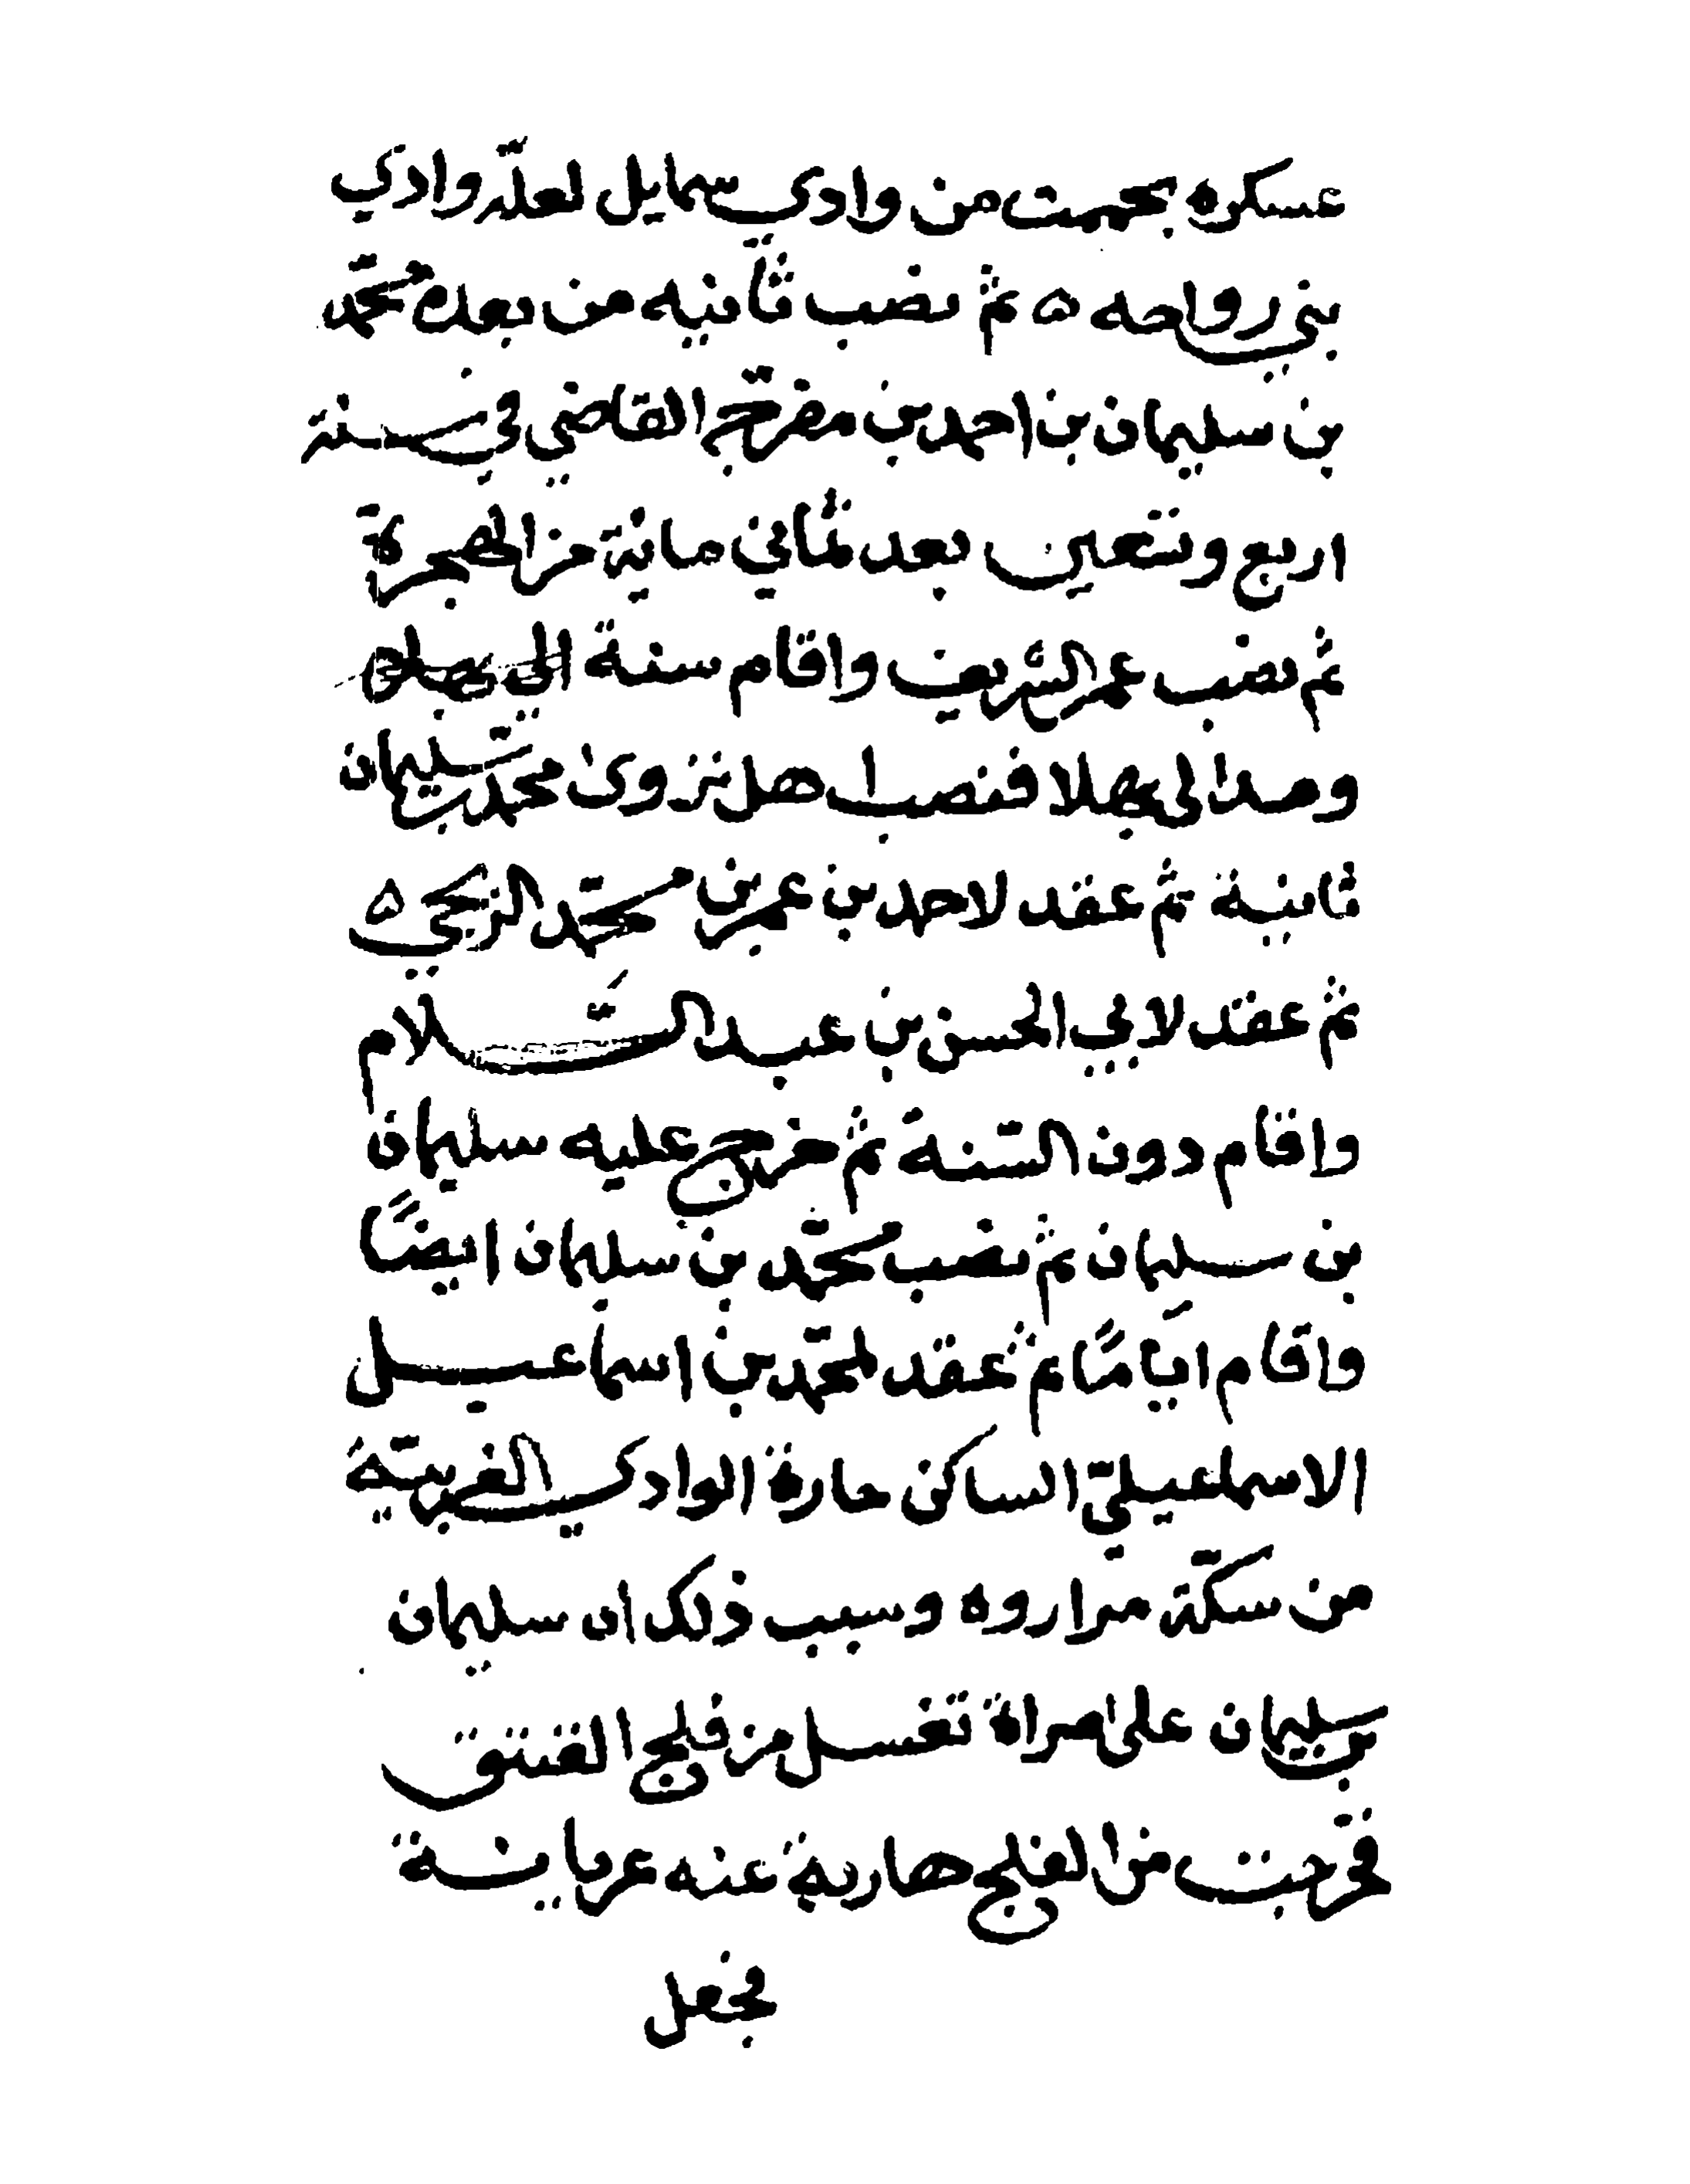 عسكره بحممت من وادي سمايل لعلّه وادي
بني رواحه ه ثم نصب ثانيه من بعده محمّد
بن سليمان بن احمد بن مفرّج القاضي في سنة
اربع وتسعين بعد ثماني مائة من الهجرة
ثم نصب عمر الشريف واقام سنة الى
ومدا لى بهلا فنصب اهل نزوى محمّد بن سليمان
ثانية ثم عقد لاحمد بن عمر بن محمّد الربخي ه
ثم عقد لابي الحسن بن عبد السَّلام
واقام دون السّنة ثم خرج عليه سليمان
بن سليمان ثم نصب محمّد بن سليمان ايضًا
واقام ايّامًا ثم عقد لمحمّد بن اسماعيل
الاسماعيليّ الساكن حارة الوادي الغربيّة
من سكّة مزاروه وسبب ذلك ان سليمان
بن سليمان على امراة تغسل من فلج الغنتق
فخرجت من الفلج هاربة عنه عريانة
فجعل